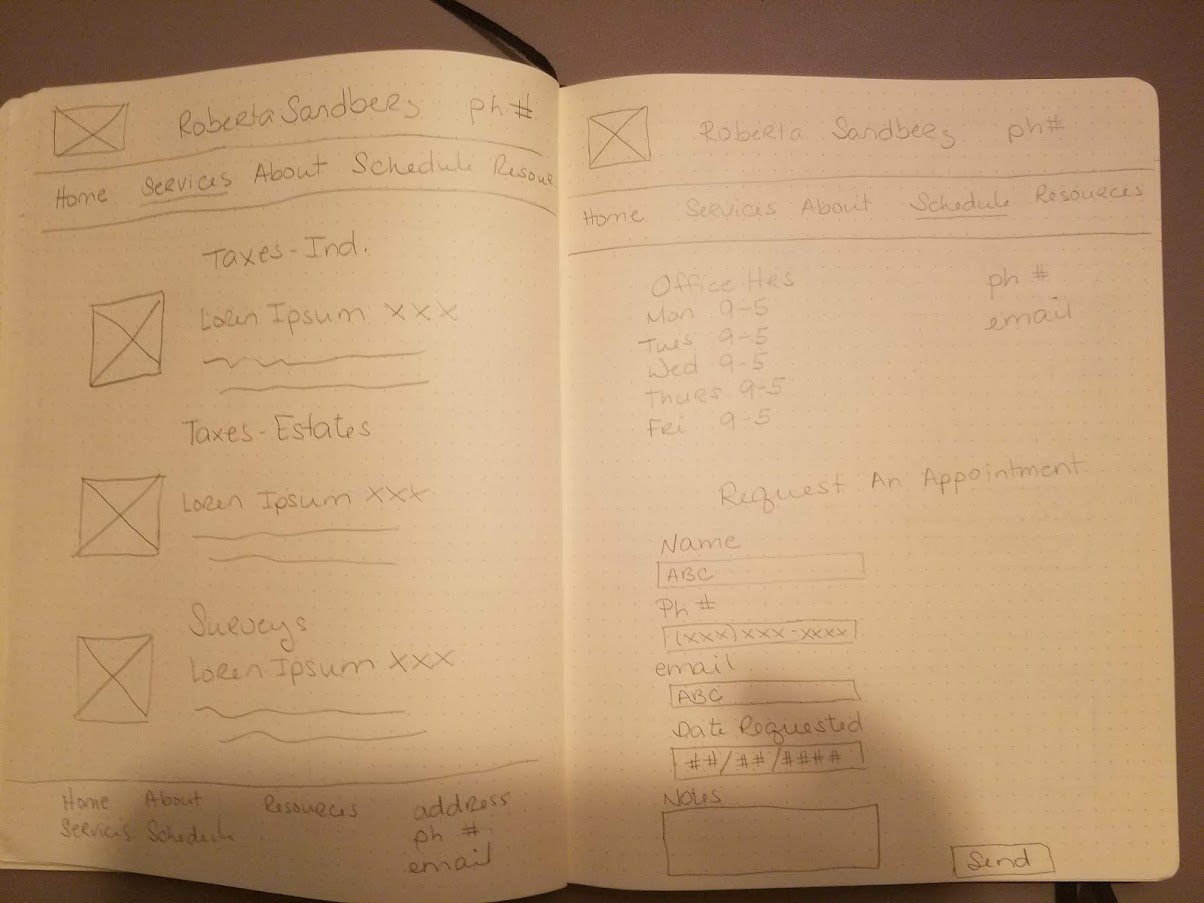 Roberta Sandbers ph #
Home Services About Schedule Resour
Taxes - Ind.
Loren Ipsum XXX
Taxes - Estates
Loren Ipsum XXX
Surveys
Loren Ipsum XXX
Home About Resources address
Services Schedule ph #
email
Roberta Sandbers ph #
Home Services About Schedule Resources
Office Hrs ph #
Mon 9-5 email
Tues 9-5
Wed 9-5
Thurs 9-5
Fri 9-5
Request An Appointment
Name
ABC
Ph #
(xxx) xxx-xxxx
email
ABC
Date Requested
##/##/####
Notes
Send